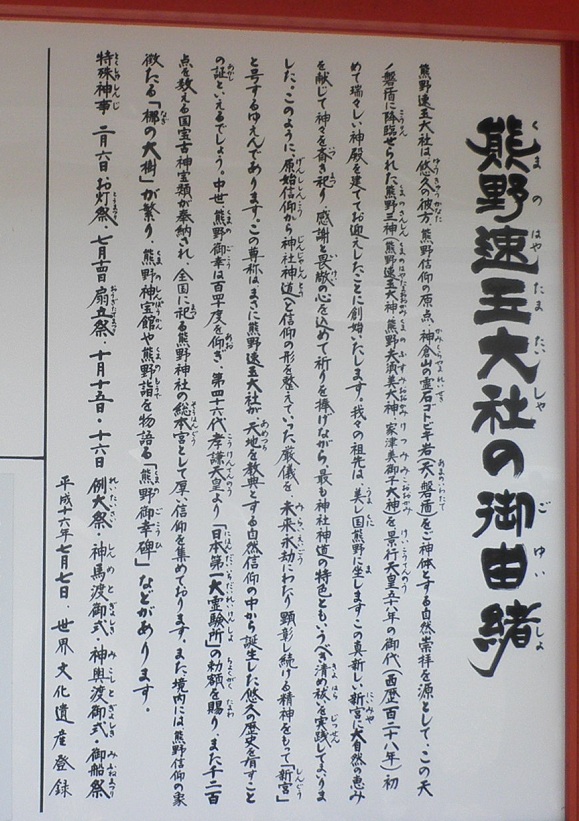 熊野速玉大社の御由緒
熊野速玉大社は悠久の彼方、熊野信仰の原点、神倉山の霊石ゴトビキ岩（天磐盾）をご神体とする自然崇拝を源として、この天
ノ磐盾に降臨せられた熊野三神（熊野速玉大神・熊野夫須美大神・家津美御子大神）を、景行天皇五十八年の御代（西歴百二十八年）初
めて瑞々しい神殿を建ててお迎えしたことに創始いたします。我々の祖先は、美し国熊野に坐しますこの真新しい新宮に、大自然の恵み
を献じて神々を斎き祀り、感謝と畏敬の心を込めて祈りを捧げながら、最も神社神道の特色ともいうべき清め祓いを実践してまいりま
した。このように、原始信仰から神社神道へと信仰の形を整えていった厳儀を、未来永劫にわたり顕彰し続ける精神をもって「新宮」
と号するゆえんであります。この尊称はまさに熊野速玉大社が、天地を教典とする自然信仰の中から誕生した悠久の歴史を有すこと
の証といえるでしょう。中世、熊野御幸は百四十度を仰ぎ、第四十六代孝謙天皇より「日本第一大霊験所」の勅額を賜り、また千二百
点を数える国宝古神宝類が奉納され、全国に祀る熊野神社の総本宮として厚い信仰を集めております。また境内には熊野信仰の象
徴たる「梛の大樹」が繁り、熊野神宝館や熊野詣を物語る「熊野御幸碑」などがあります。
特殊神事　二月六日・お灯祭、七月十四日　扇立祭・十月十五日・十六日　例大祭・神馬渡御式・神輿渡御式・御船祭
平成十六年七月七日・世界文化遺産登録